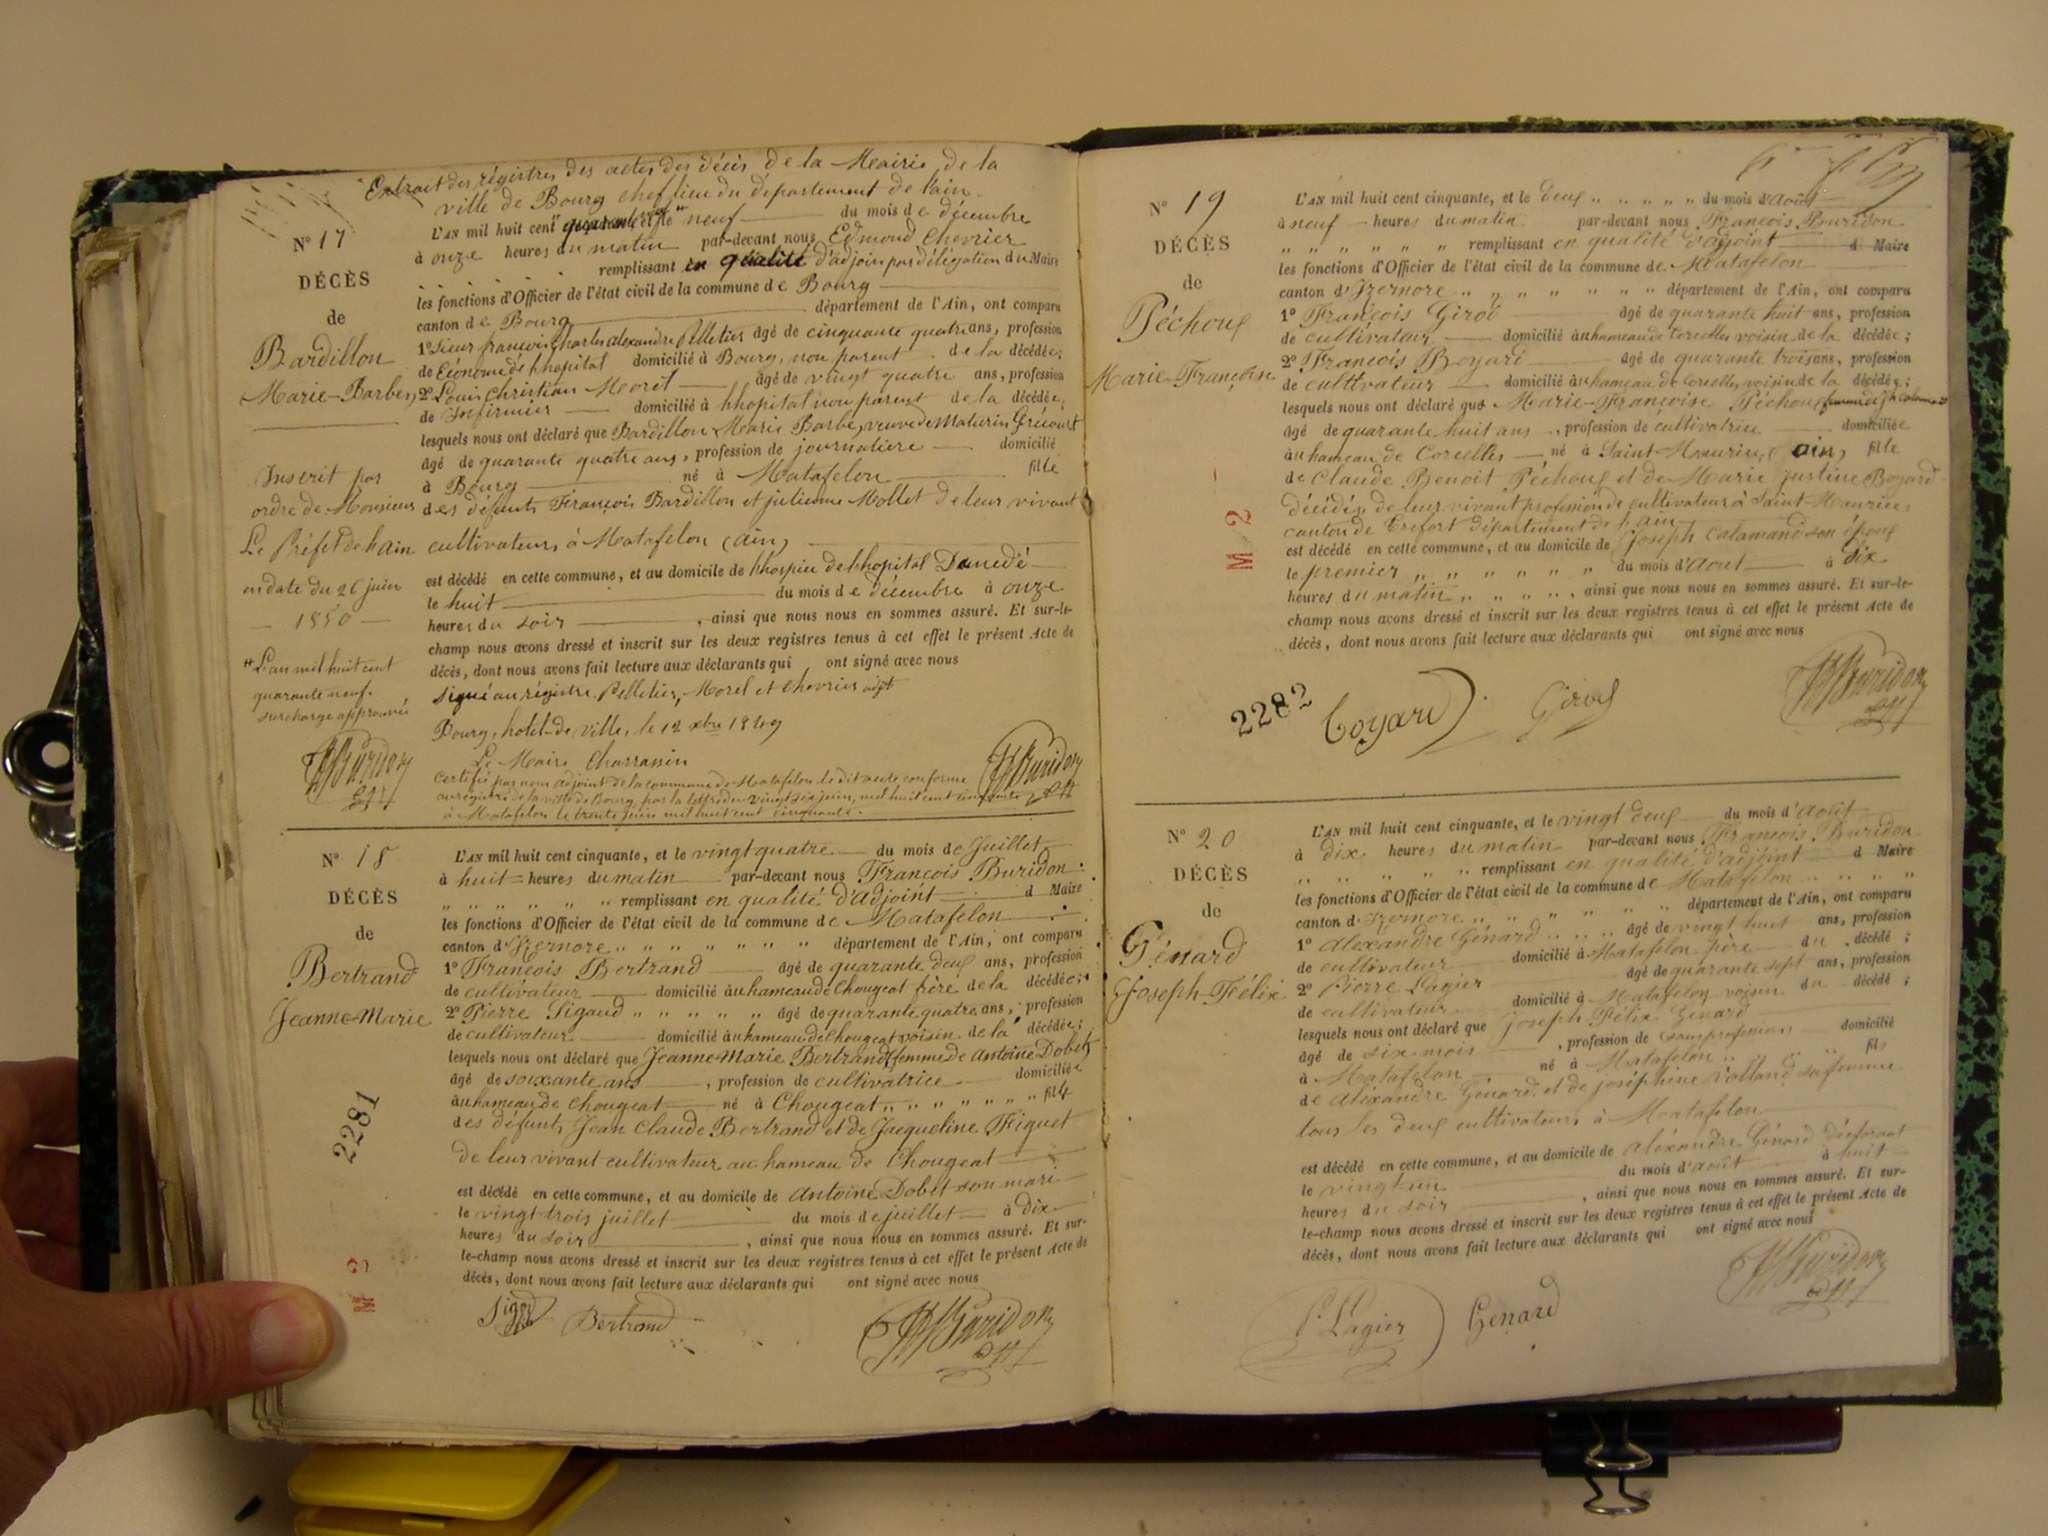 Extrait des régistres des actes des décès de la Mairie de la
ville de Bourg chef lieu du département de l'ain.
N° 17
DÉCÈS
de
Bardillon
Marie-Barbe,
Inscrit par
ordre de Monsieur
Le Préfet de l'ain
en date du 26 juin
— 1850 —
# L'an mil huit cent
quarante neuf.
surcharge approuvée
Buridon
adjt
L'AN mil huit cent quarante et le neuf du mois de décembre
à onze heures du matin par-devant nous Edmond Chevrier
remplissant en qualité d'adjoin par délégation du Maire
les fonctions d'Officier de l'état civil de la commune de Bourg
canton de Bourg département de l'Ain, ont comparu
1° Sieur françois Charles alexandre Pelletier âgé de cinquante quatre ans, profession
de Économe de l'hopital domicilié à Bourg, non parent de la décédée;
2° Louis Christian Morel âgé de vingt quatre ans, profession
de Infirmier domicilié à l'hopital non parent de la décédée,
lesquels nous ont déclaré que Bardillon Marie Barbe, veuve de Maturin Grécourt
âgé de quarante quatre ans, profession de journalière domicilié
à Bourg né à Matafelon fille
des défunts François Bardillon et julienne Mollet de leur vivant
cultivateurs à Matafelon (ain)
est décédé en cette commune, et au domicile de l'hospice de l'hopital
le huit du mois de décembre à onze
heures du soir, ainsi que nous nous en sommes assuré. Et sur-le-
champ nous avons dressé et inscrit sur les deux registres tenus à cet effet le présent Acte de
décès, dont nous avons fait lecture aux déclarants qui ont signé avec nous
signé au régistre Pelletier, Morel et Chevrier adjt
Bourg, hotel-de ville, le 12 xbre 1849
Le Maire Charrassin
Certifié par nous adjoint de la commune de Matafelon le dit acte conforme
au régistre de la ville de Bourg par la lettre du vingt six juin, mil huit cent cinquante
à Matafelon le trente juin mil huit cent cinquante.
Buridon
N° 18
DÉCÈS
de
Bertrand
Jeanne-Marie
2281
M 3
L'AN mil huit cent cinquante, et le vingt quatre du mois de Juillet
à huit heures du matin par-devant nous François Buridon
remplissant en qualité d'adjoint d Maire
les fonctions d'Officier de l'état civil de la commune de Matafelon
canton d'Izernore département de l'Ain, ont comparu
1° François Bertrand âgé de quarante deux ans, profession
de cultivateur domicilié au hameau de Chougeat frère de la décédée;
2° Pierre Sigaud âgé de quarante quatre ans, profession
de cultivateur domicilié au hameau de Chougeat voisin de la décédée;
lesquels nous ont déclaré que Jeanne-Marie Bertrand femme de Antoine Dobet
âgé de soixante ans, profession de cultivatrice domiciliée
au hameau de Chougeat né à Chougeat fille
des défunts Jean Claude Bertrand et de Jacqueline Figuet
de leur vivant cultivateur au hameau de Chougeat
est décédé en cette commune, et au domicile de Antoine Dobet son mari
le vingt trois juillet du mois de juillet à dix
heures du soir, ainsi que nous nous en sommes assuré. Et sur-
le-champ nous avons dressé et inscrit sur les deux registres tenus à cet effet le présent Acte de
décès, dont nous avons fait lecture aux déclarants qui ont signé avec nous
Bertrand
Buridon
adjt
N° 19
DÉCÈS
de
Péchoux
Marie-Françoise
M 2
2282
L'AN mil huit cent cinquante, et le deux du mois d'août
à neuf heures du matin par-devant nous François Buridon
remplissant en qualité d'adjoint d Maire
les fonctions d'Officier de l'état civil de la commune de Matafelon
canton d'Izernore département de l'Ain, ont comparu
1° François Girod âgé de quarante huit ans, profession
de cultivateur domicilié au hameau de Corcelles voisin de la décédée;
2° François Boyard âgé de quarante trois ans, profession
de cultivateur domicilié au hameau de Corcelles, voisin de la décédée;
lesquels nous ont déclaré que Marie-Françoise Péchoux femme de jh calamand
âgé de quarante huit ans, profession de cultivatrice domiciliée
au hameau de Corcelles né à Saint Maurice, (ain) fille
de Claude Benoit Péchoux et de Marie justine Boyard
décédés, de leur vivant profession de cultivateur à Saint-Maurice,
canton de Treffort département de l'ain
est décédé en cette commune, et au domicile de Joseph Calamand son époux
le premier du mois d'Août à dix
heures du matin, ainsi que nous nous en sommes assuré. Et sur-le-
champ nous avons dressé et inscrit sur les deux registres tenus à cet effet le présent Acte de
décès, dont nous avons fait lecture aux déclarants qui ont signé avec nous
Boyard Girod
Buridon
adjt
N° 20
DÉCÈS
de
Génard
Joseph-Félix
L'AN mil huit cent cinquante, et le vingt deux du mois d'Août
à dix heures du matin par-devant nous François Buridon
remplissant en qualité d'adjoint d Maire
les fonctions d'Officier de l'état civil de la commune de Matafelon
canton d'Izernore département de l'Ain, ont comparu
1° Alexandre Génard âgé de vingt huit ans, profession
de cultivateur domicilié à Matafelon père du décédé;
2° Pierre Lagier âgé de quarante sept ans, profession
de cultivateur domicilié à Matafelon voisin du décédé;
lesquels nous ont déclaré que Joseph Félix Génard
âgé de six mois, profession de sans profession domicilié
à Matafelon né à Matafelon fils
de Alexandre Génard et de joséphine Volland sa femme
tous les deux cultivateurs à Matafelon
est décédé en cette commune, et au domicile de Alexandre Génard
le vingt un du mois d'août à huit
heures du soir, ainsi que nous nous en sommes assuré. Et sur-
le-champ nous avons dressé et inscrit sur les deux registres tenus à cet effet le présent Acte de
décès, dont nous avons fait lecture aux déclarants qui ont signé avec nous
P. Lagier Génard
Buridon
adjt